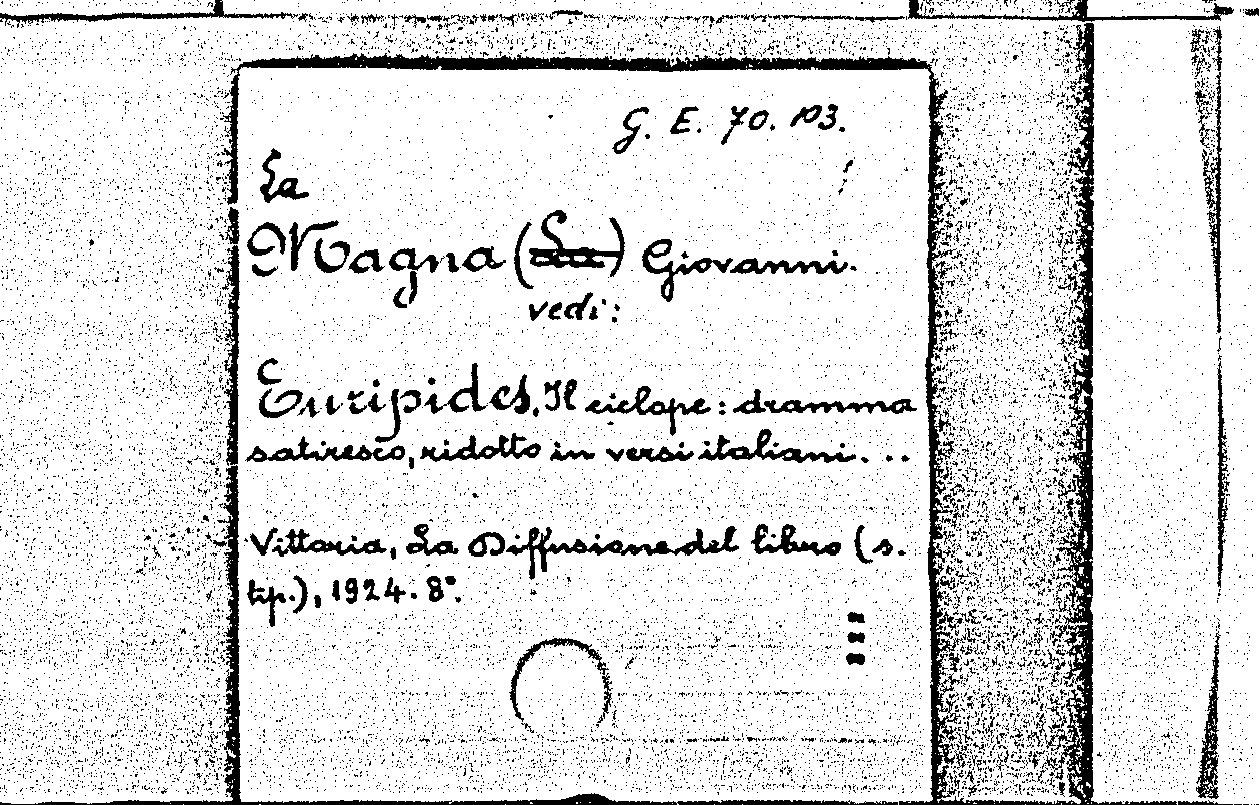 G. E. 70. 103.
La
Magna (La) Giovanni.
vedi:
Euripides. Il ciclope: dramma
satiresco, ridotto in versi italiani...
Vittoria, La Diffusione del libro (s.
tip.), 1924. 8°.